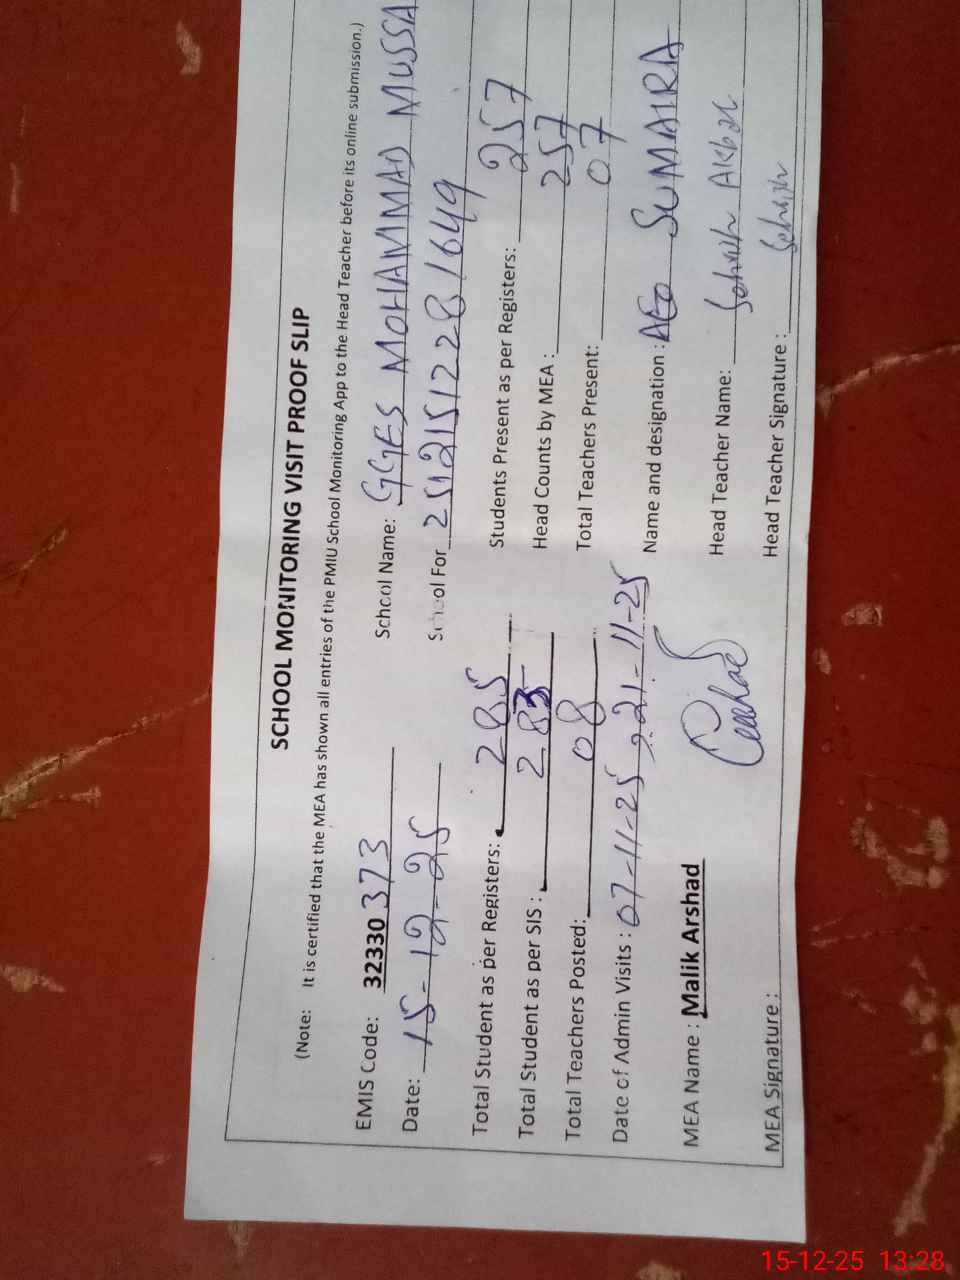 SCHOOL MONITORING VISIT PROOF SLIP
(Note: It is certified that the MEA has shown all entries of the PMIU School Monitoring App to the Head Teacher before its online submission.)
EMIS Code: 32330 373 School Name: GGES MOHAMMAD MUSSA
Date: 15-12-25 School For 25121512281649
Total Student as per Registers: 285 Students Present as per Registers: 257
Total Student as per SIS: 285 Head Counts by MEA: 257
Total Teachers Posted: 08 Total Teachers Present: 07
Date of Admin Visits: 07-11-25, 21-11-25 Name and designation: AEO SUMAIRA
MEA Name: Malik Arshad Head Teacher Name: Akbar
MEA Signature: Head Teacher Signature:
15-12-25 13:28